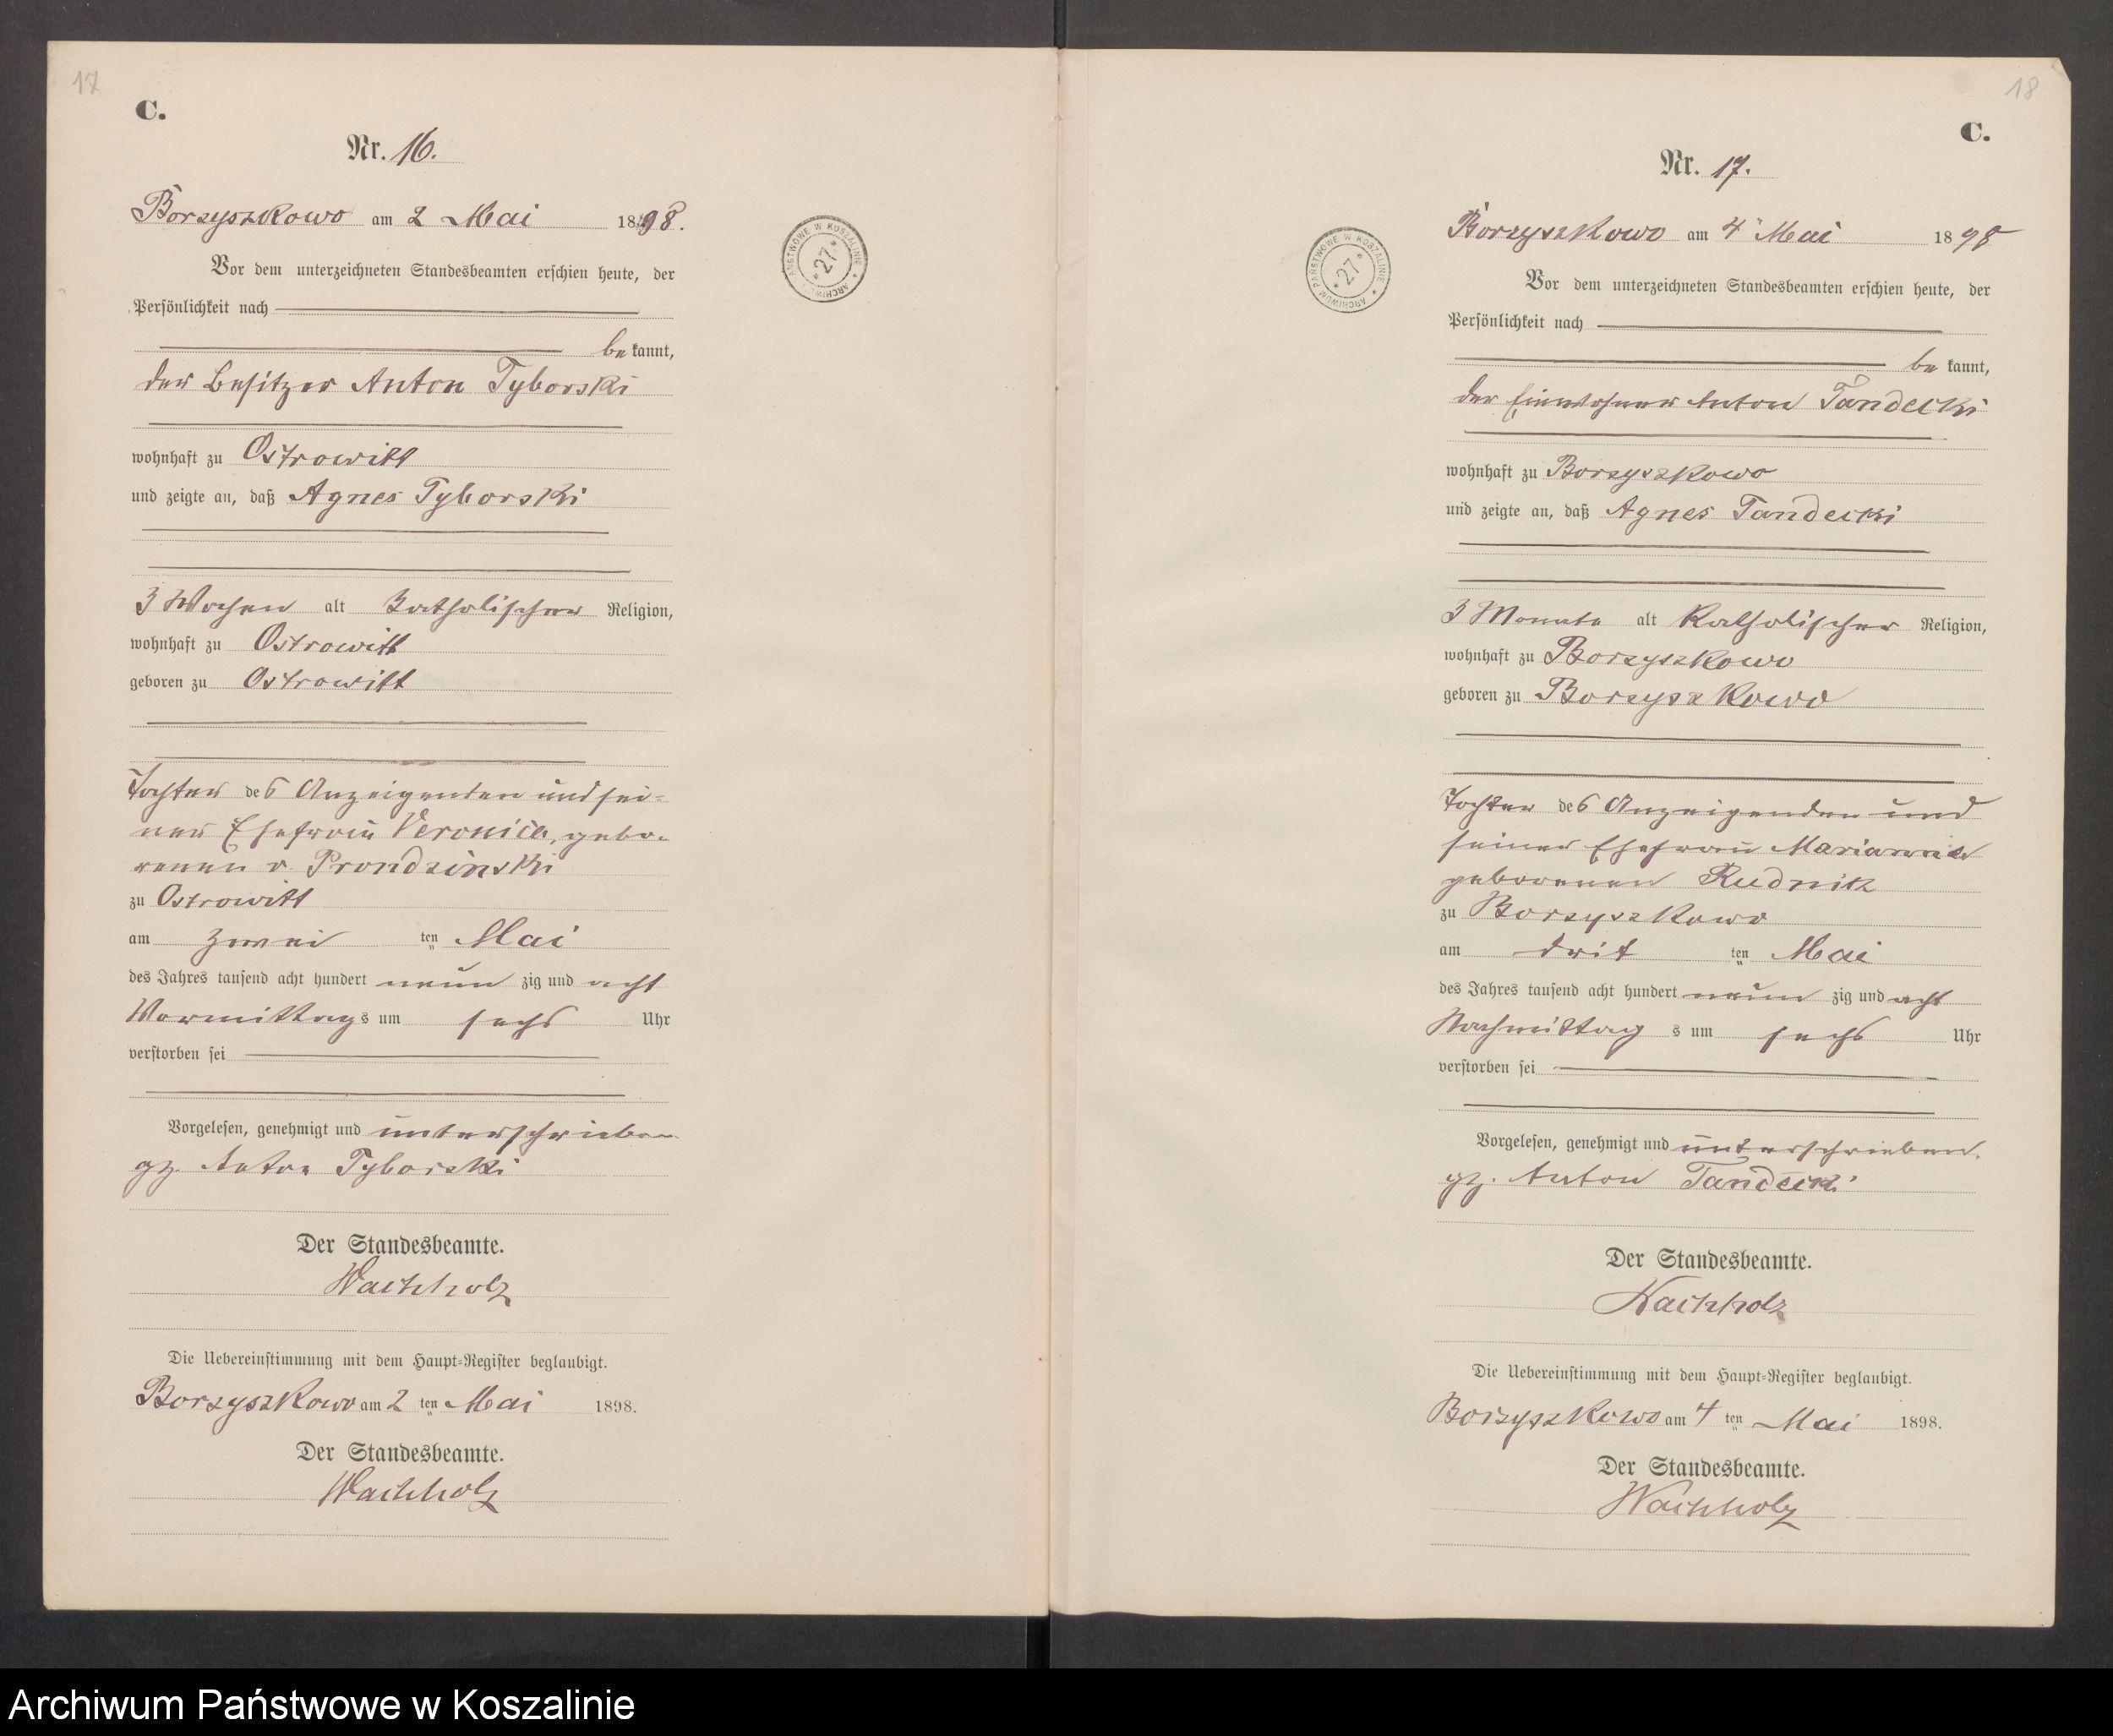 17
C.
Nr. 16.
Borzyszkowo am 2 Mai 1898.
Vor dem unterzeichneten Standesbeamten erschien heute, der
Persönlichkeit nach
be kannt,
der Besitzer Anton Tyborski
wohnhaft zu Ostrowitt
und zeigte an, daß Agnes Tyborski
3 Wochen alt katholischer Religion,
wohnhaft zu Ostrowitt
geboren zu Ostrowitt
Tochter des Anzeigenden und sei-
ner Ehefrau Veronica, gebo-
renen v. Prondzinski
zu Ostrowitt
am zwei ten Mai
des Jahres tausend acht hundert neun zig und acht
Vormittags um sechs Uhr
verstorben sei
Vorgelesen, genehmigt und unterschrieben
gz. Anton Tyborski
Der Standesbeamte.
Wachholz
Die Uebereinstimmung mit dem Haupt-Register beglaubigt.
Borzyszkowo am 2 ten Mai 1898.
Der Standesbeamte.
Wachholz
ARCHIWUM PAŃSTWOWE W KOSZALINIE
* 27 *
18
C.
Nr. 17.
Borzyszkowo am 4 Mai 1898
Vor dem unterzeichneten Standesbeamten erschien heute, der
Persönlichkeit nach
be kannt,
der Einwohner Anton Tandecki
wohnhaft zu Borzyszkowo
und zeigte an, daß Agnes Tandecki
3 Monate alt katholischer Religion,
wohnhaft zu Borzyszkowo
geboren zu Borzyszkowo
Tochter des Anzeigenden und
seiner Ehefrau Marianna
geborenen Rudnik
zu Borzyszkowo
am drit ten Mai
des Jahres tausend acht hundert neun zig und acht
Nachmittag s um sechs Uhr
verstorben sei
Vorgelesen, genehmigt und unterschrieben.
gz. Anton Tandecki
Der Standesbeamte.
Wachholz
Die Uebereinstimmung mit dem Haupt-Register beglaubigt.
Borzyszkowo am 4 ten Mai 1898.
Der Standesbeamte.
Wachholz
ARCHIWUM PAŃSTWOWE W KOSZALINIE
* 27 *
Archiwum Państwowe w Koszalinie